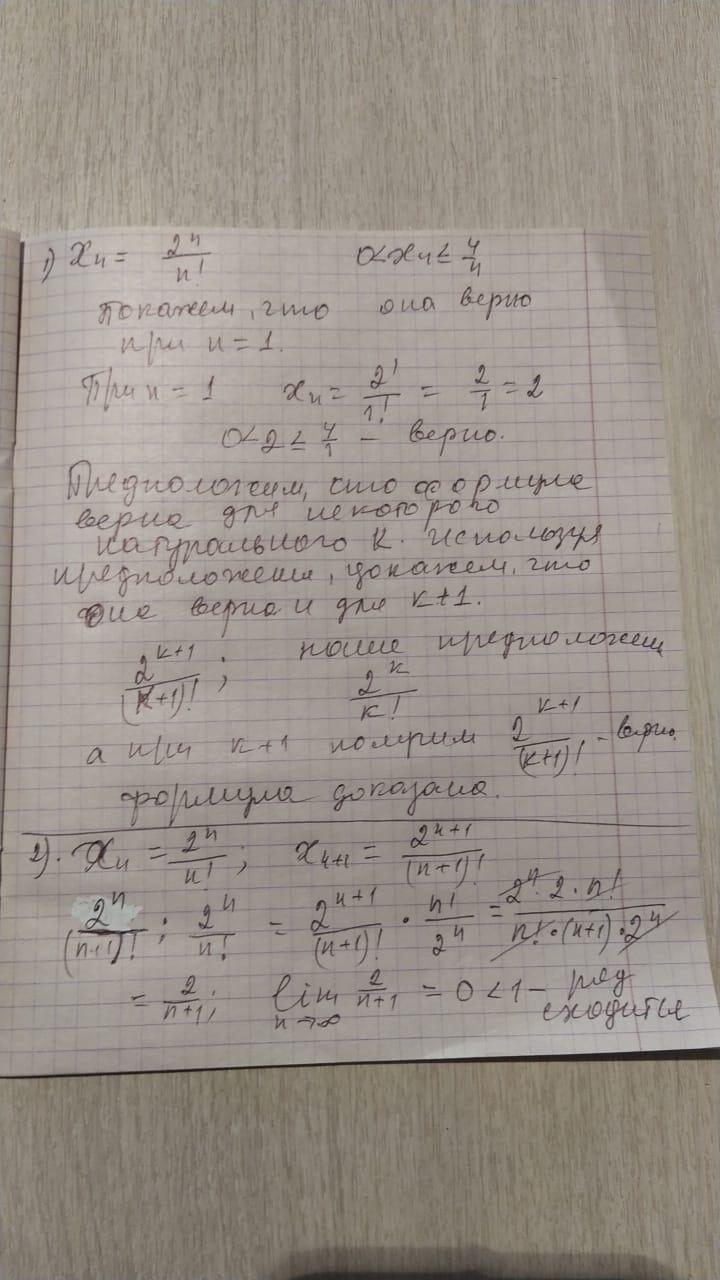 1) xₙ = 2ⁿ/n!    0 < xₙ ≤ 4/n
Покажем, что она верно
при n = 1.
При n = 1    xₙ = 2¹/1! = 2/1 = 2
0 < 2 ≤ 4/1 – верно.
Предположим, что формула
верна для некоторого
натурального К. Используя
предположения, докажем, что
она верна и для к+1.
2^(к+1)/(к+1)! ;    наше предположен
2^к/к!
а при к+1 получим 2^(к+1)/(к+1)! – верно.
формула доказана.
2). xₙ = 2ⁿ/n! ;    xₙ₊₁ = 2ⁿ⁺¹/(n+1)!
2ⁿ/(n+1)! : 2ⁿ/n! = 2ⁿ⁺¹/(n+1)! · n!/2ⁿ = 2ⁿ · 2 · n!/n! · (n+1) · 2ⁿ
= 2/n+1 ;    lim n→∞ 2/n+1 = 0 < 1 – ряд
сходится